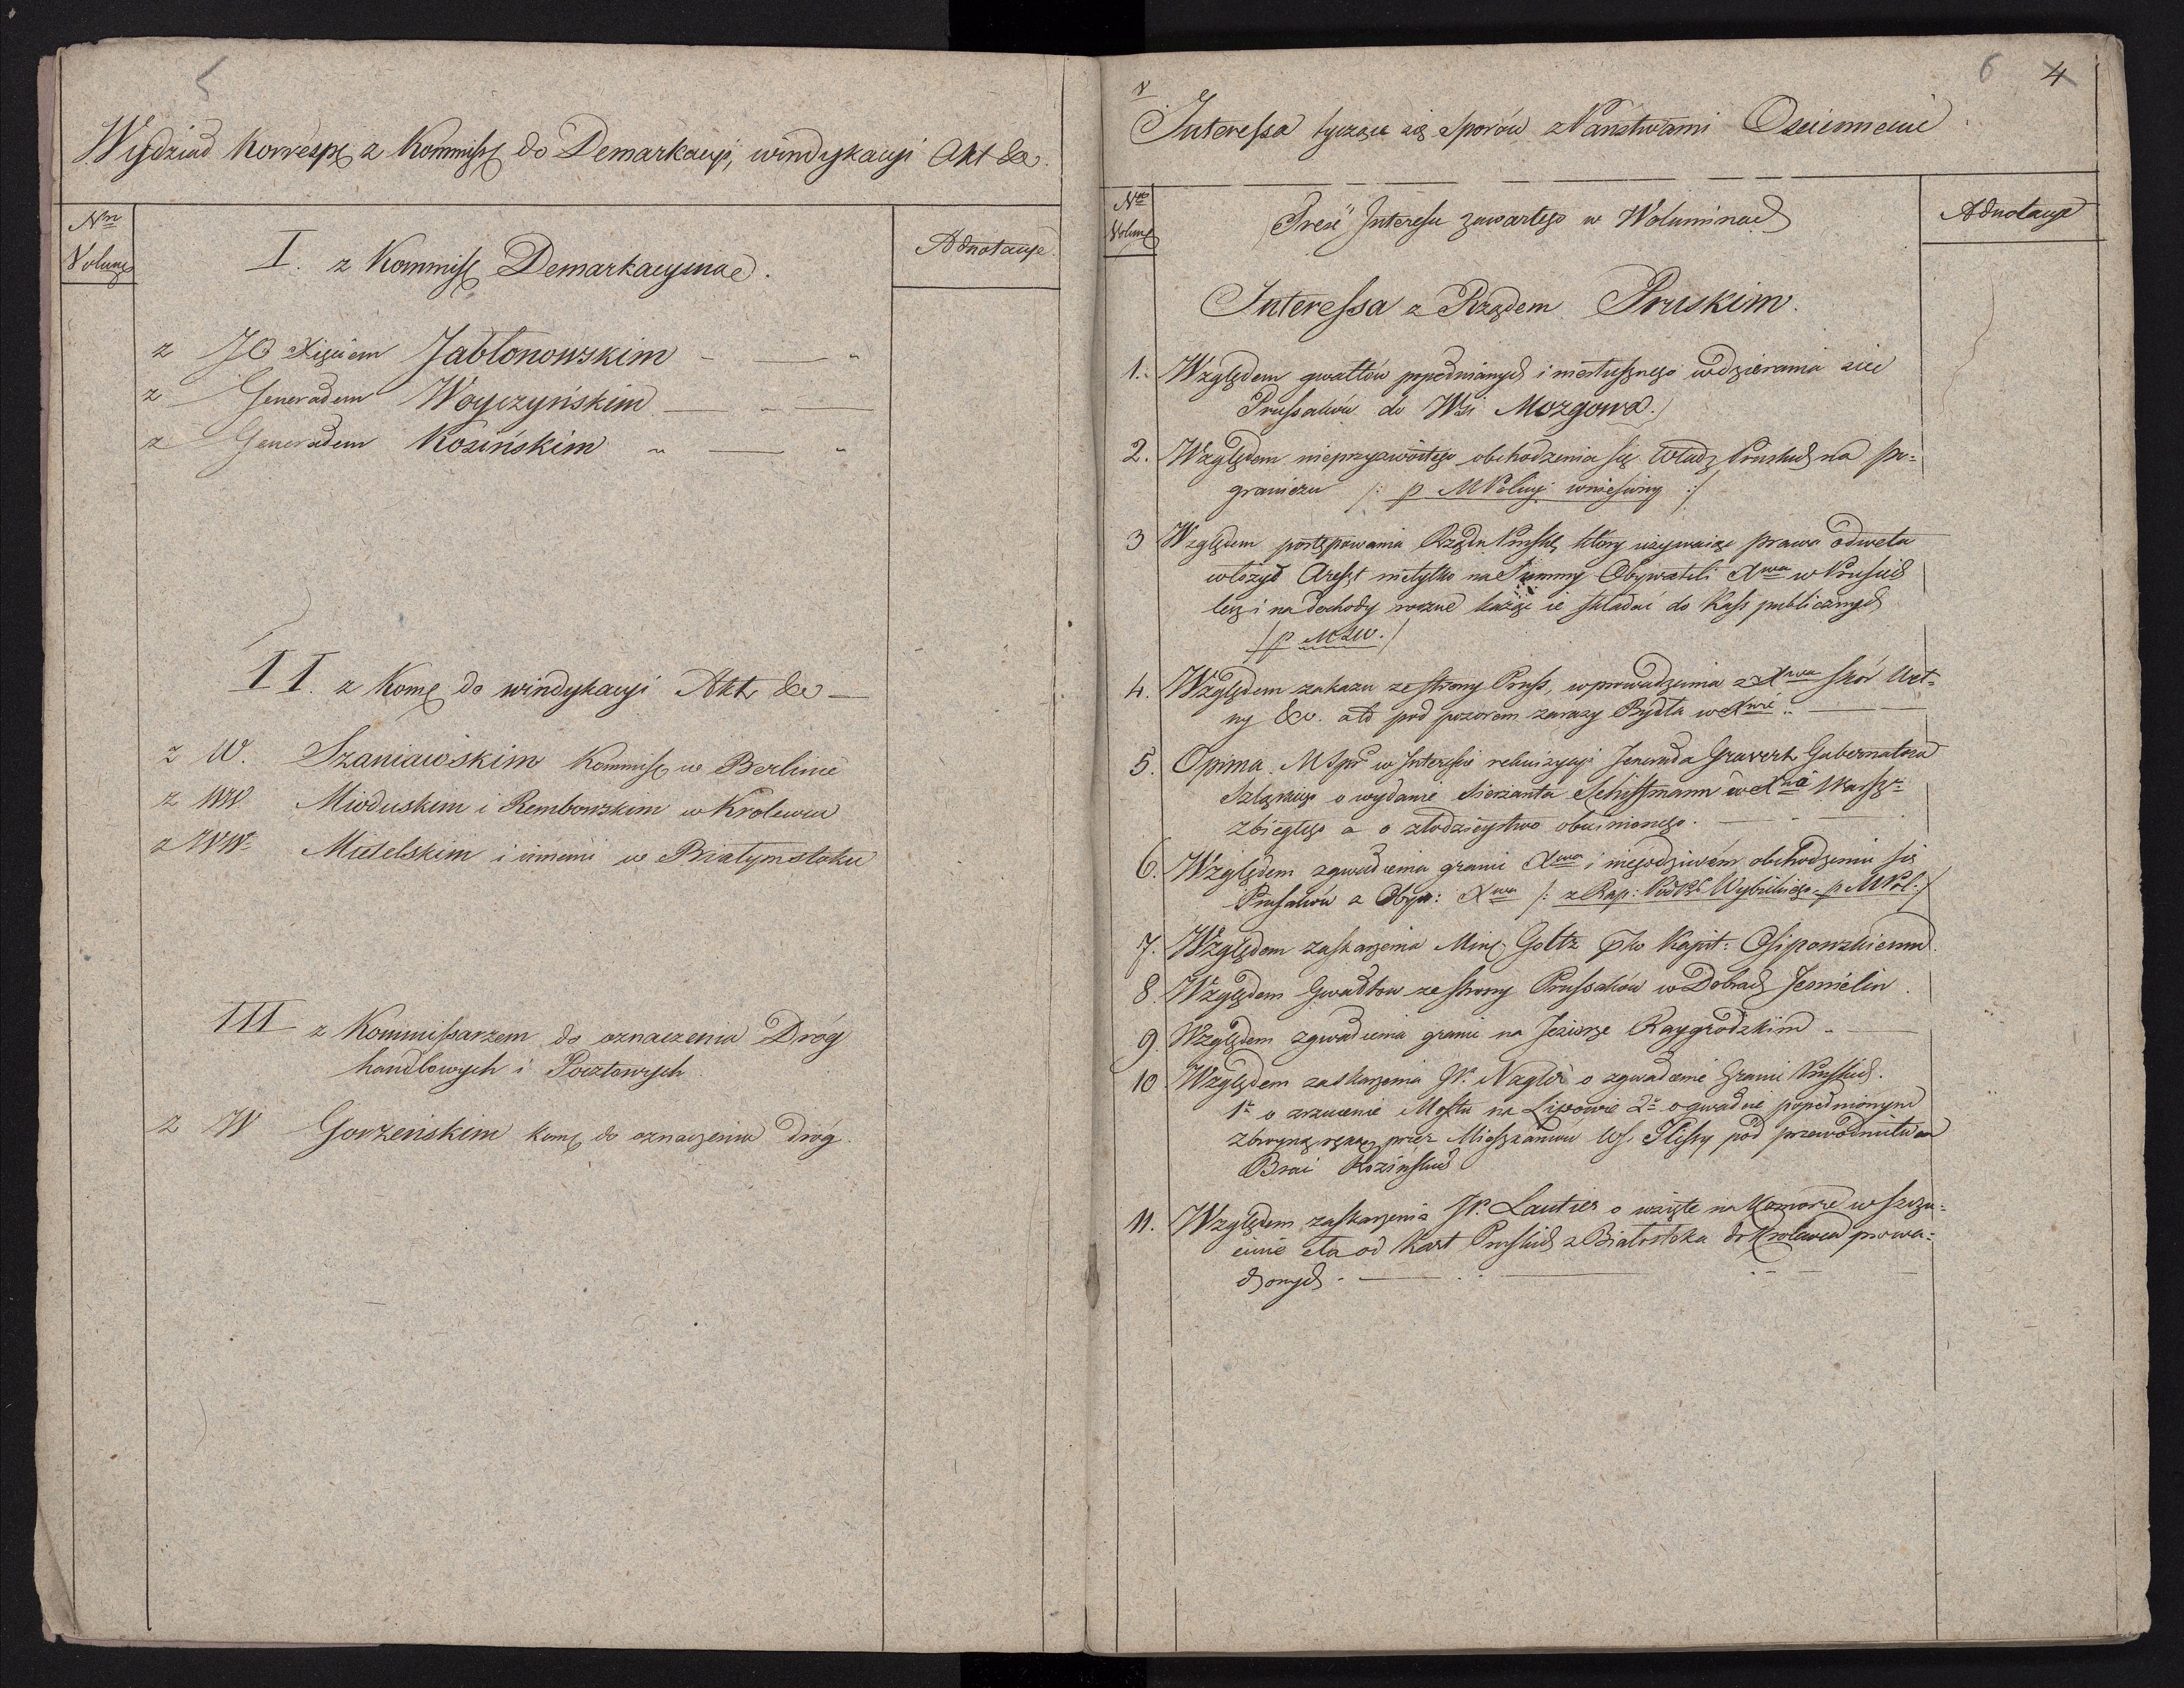 5
Wydział Korresp z Kommiss do Demarkacyi, windykacyi Akt &c.
Nrn
Volum
I. z Kommiss Demarkacyjnæ.
Adnotacye
z JO Xięciem Jabłonowskim
z Generałem Woyczyńskim
z Generałem Kosińskim
II. z Kom do windykacyi Akt &c
z W. Szaniawskim Kommiss w Berlinie
z WW Mioduskim i Rembowskim w Krolewcu
z WW Mielelskim i innemi w Białymstoku
III z Kommissarzem do oznaczenia Dróg
handlowych i Pocztowych
z W Gorzeńskim kom do oznaczenia dróg.
6 4
Interessa tyczące się Sporów z Państwami Ościennemi
Nro
Volum
Treść Interesu zawartego w Woluminach
Adnotacye
Interessa z Rządem Pruskim.
1. Względem gwałtów popełnianych i niesłusznego wdzierania sie
Prussaków do Wsi Mozgowa.
2. Względem nieprzyzwoitego obchodzenia się Władz Pruskich na po=
graniczu /: p MPolicyi wniesiony :/
3 Względem postępowania Rządu Prusk który używaiąc prawa odwetu
włożył Areszt nietylko na Summy Obywateli Xwa w Prusiech
lecz i na dochody roczne każąc ie składać do Kass publicznych
/ p MSW. /
4. Względem zakazu ze strony Pruss, wprowadzenia z Xwa skór Weł=
ny &c. a to pod pozorem zarazy Bydła w Xwie
5. Opinia MSpr w Interesie rekwizycyi Jenerała Gravert Gubernatora
Szląskiego o wydanie Sierżanta Schiffmann w Xwie Warsz
zbiegłego a o złodzieystwo obwinionego.
6. Względem zgwałcenia granic Xwa i niegodziwém obchodzeniu się
Prusaków z Obyw: Xwa /: z Rap: Wybickiego p MPol. /
7. Względem zaskarżenia Min Goltz pko Kapit: Osipowskiemu.
8. Względem Gwałtow ze strony Prussaków w Dobrach Jesmélin.
9. Względem zgwałcenia granic na Jeziorze Raygrodzkim
10. Względem zaskarżenia JP. Nagler o zgwałcenie Granic Pruskich.
1o o zrzucenie Mostu na Lipowie 2o o gwałcie popełnionym
zbroyną ręką przez Mieszkańców Ws. Ilisty pod przewodnictwem
Braci Kozińskich
11. Względem zaskarżenia JP. Lautier o wzięte na Komorze w Szczu=
cinie cła od Kart Pruskich z Białostoku do Krolewca prowa=
dzonych